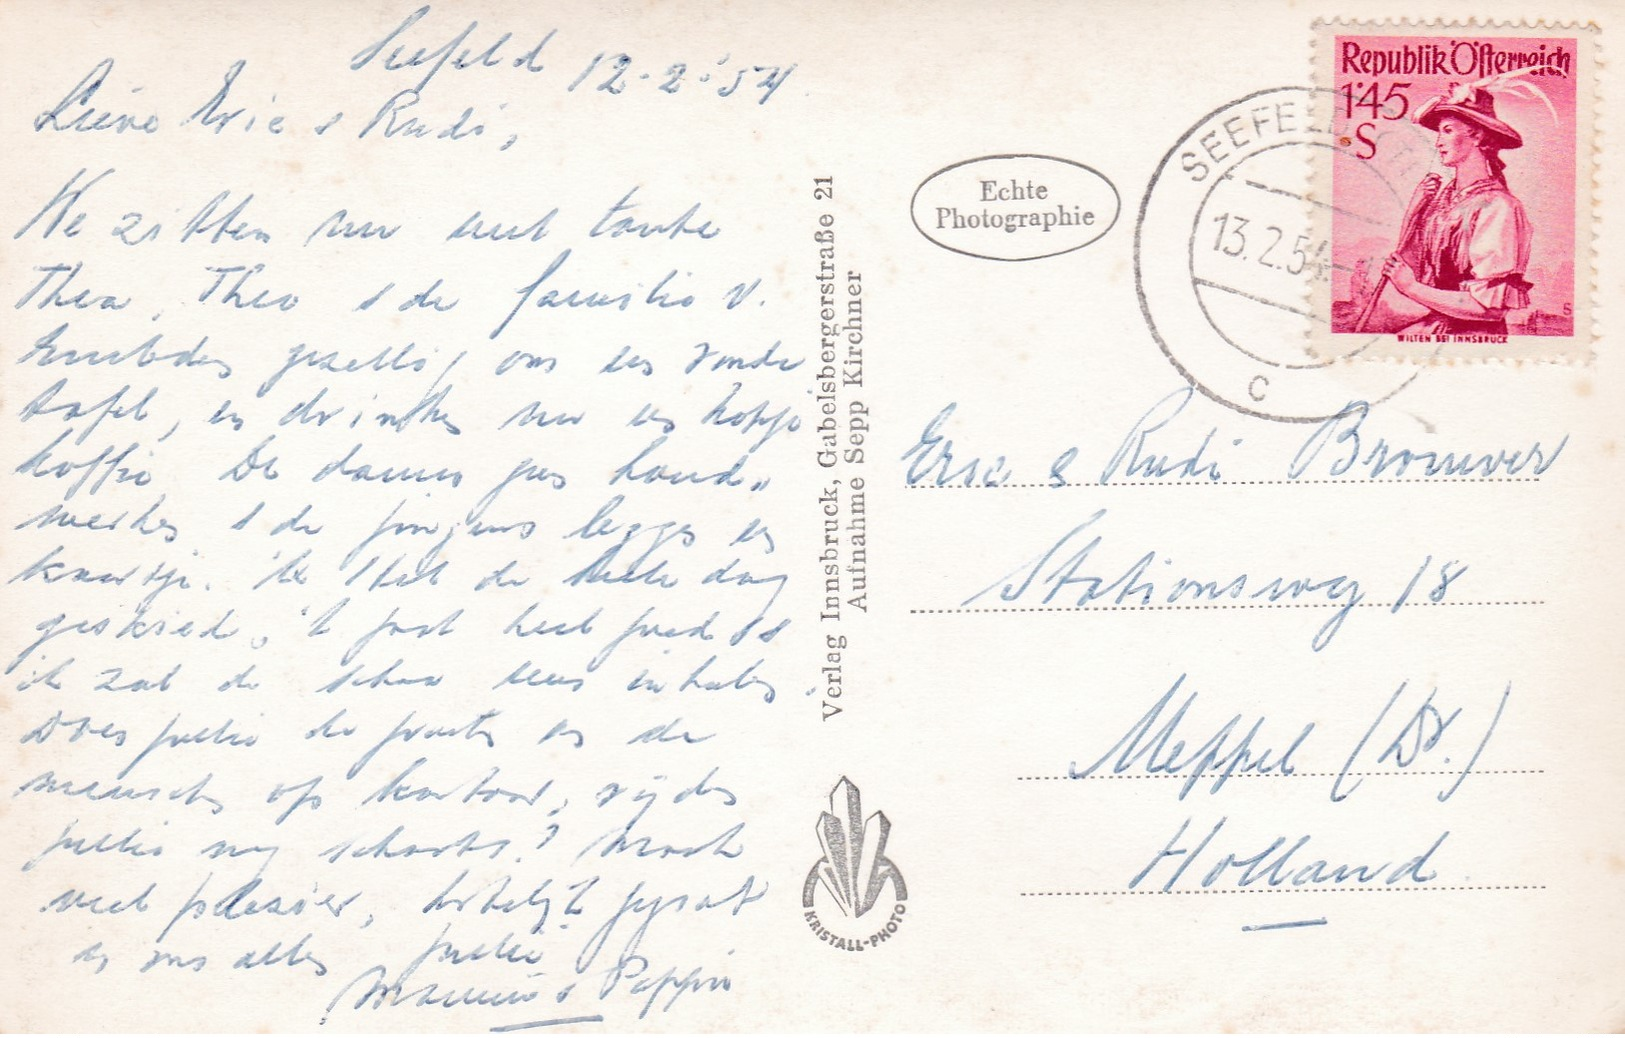 Seefeld 12-2-'54.
Lieve Eric & Rudi,
We zitten nu met tante
Thea, Theo & de familie v.
gezellig om een ronde
tafel, en drinken nu een kopje
koffie De dames gaan hand-
werken & de jongens leggen een
kaartje. Ik heb de hele dag
geskied, 't gaat heel goed &
ik zal de schae eens inhalen
Doen jullie de groeten aan de
menschen op kantoor, rijden
jullie nog schaats? Maak
veel plezier, hartelijk gegroet
en ons allen jullie
Mammie & Pappie
Echte
Photographie
Verlag Innsbruck, Gabelsbergerstraße 21
Aufnahme Sepp Kirchner
KRISTALL-PHOTO
Republik Österreich
1'45
S
WILTEN BEI INNSBRUCK
SEEFELD
13.2.54
C
Eric & Rudi Brouwer
Stationsweg 18
Meppel (Dr.)
Holland